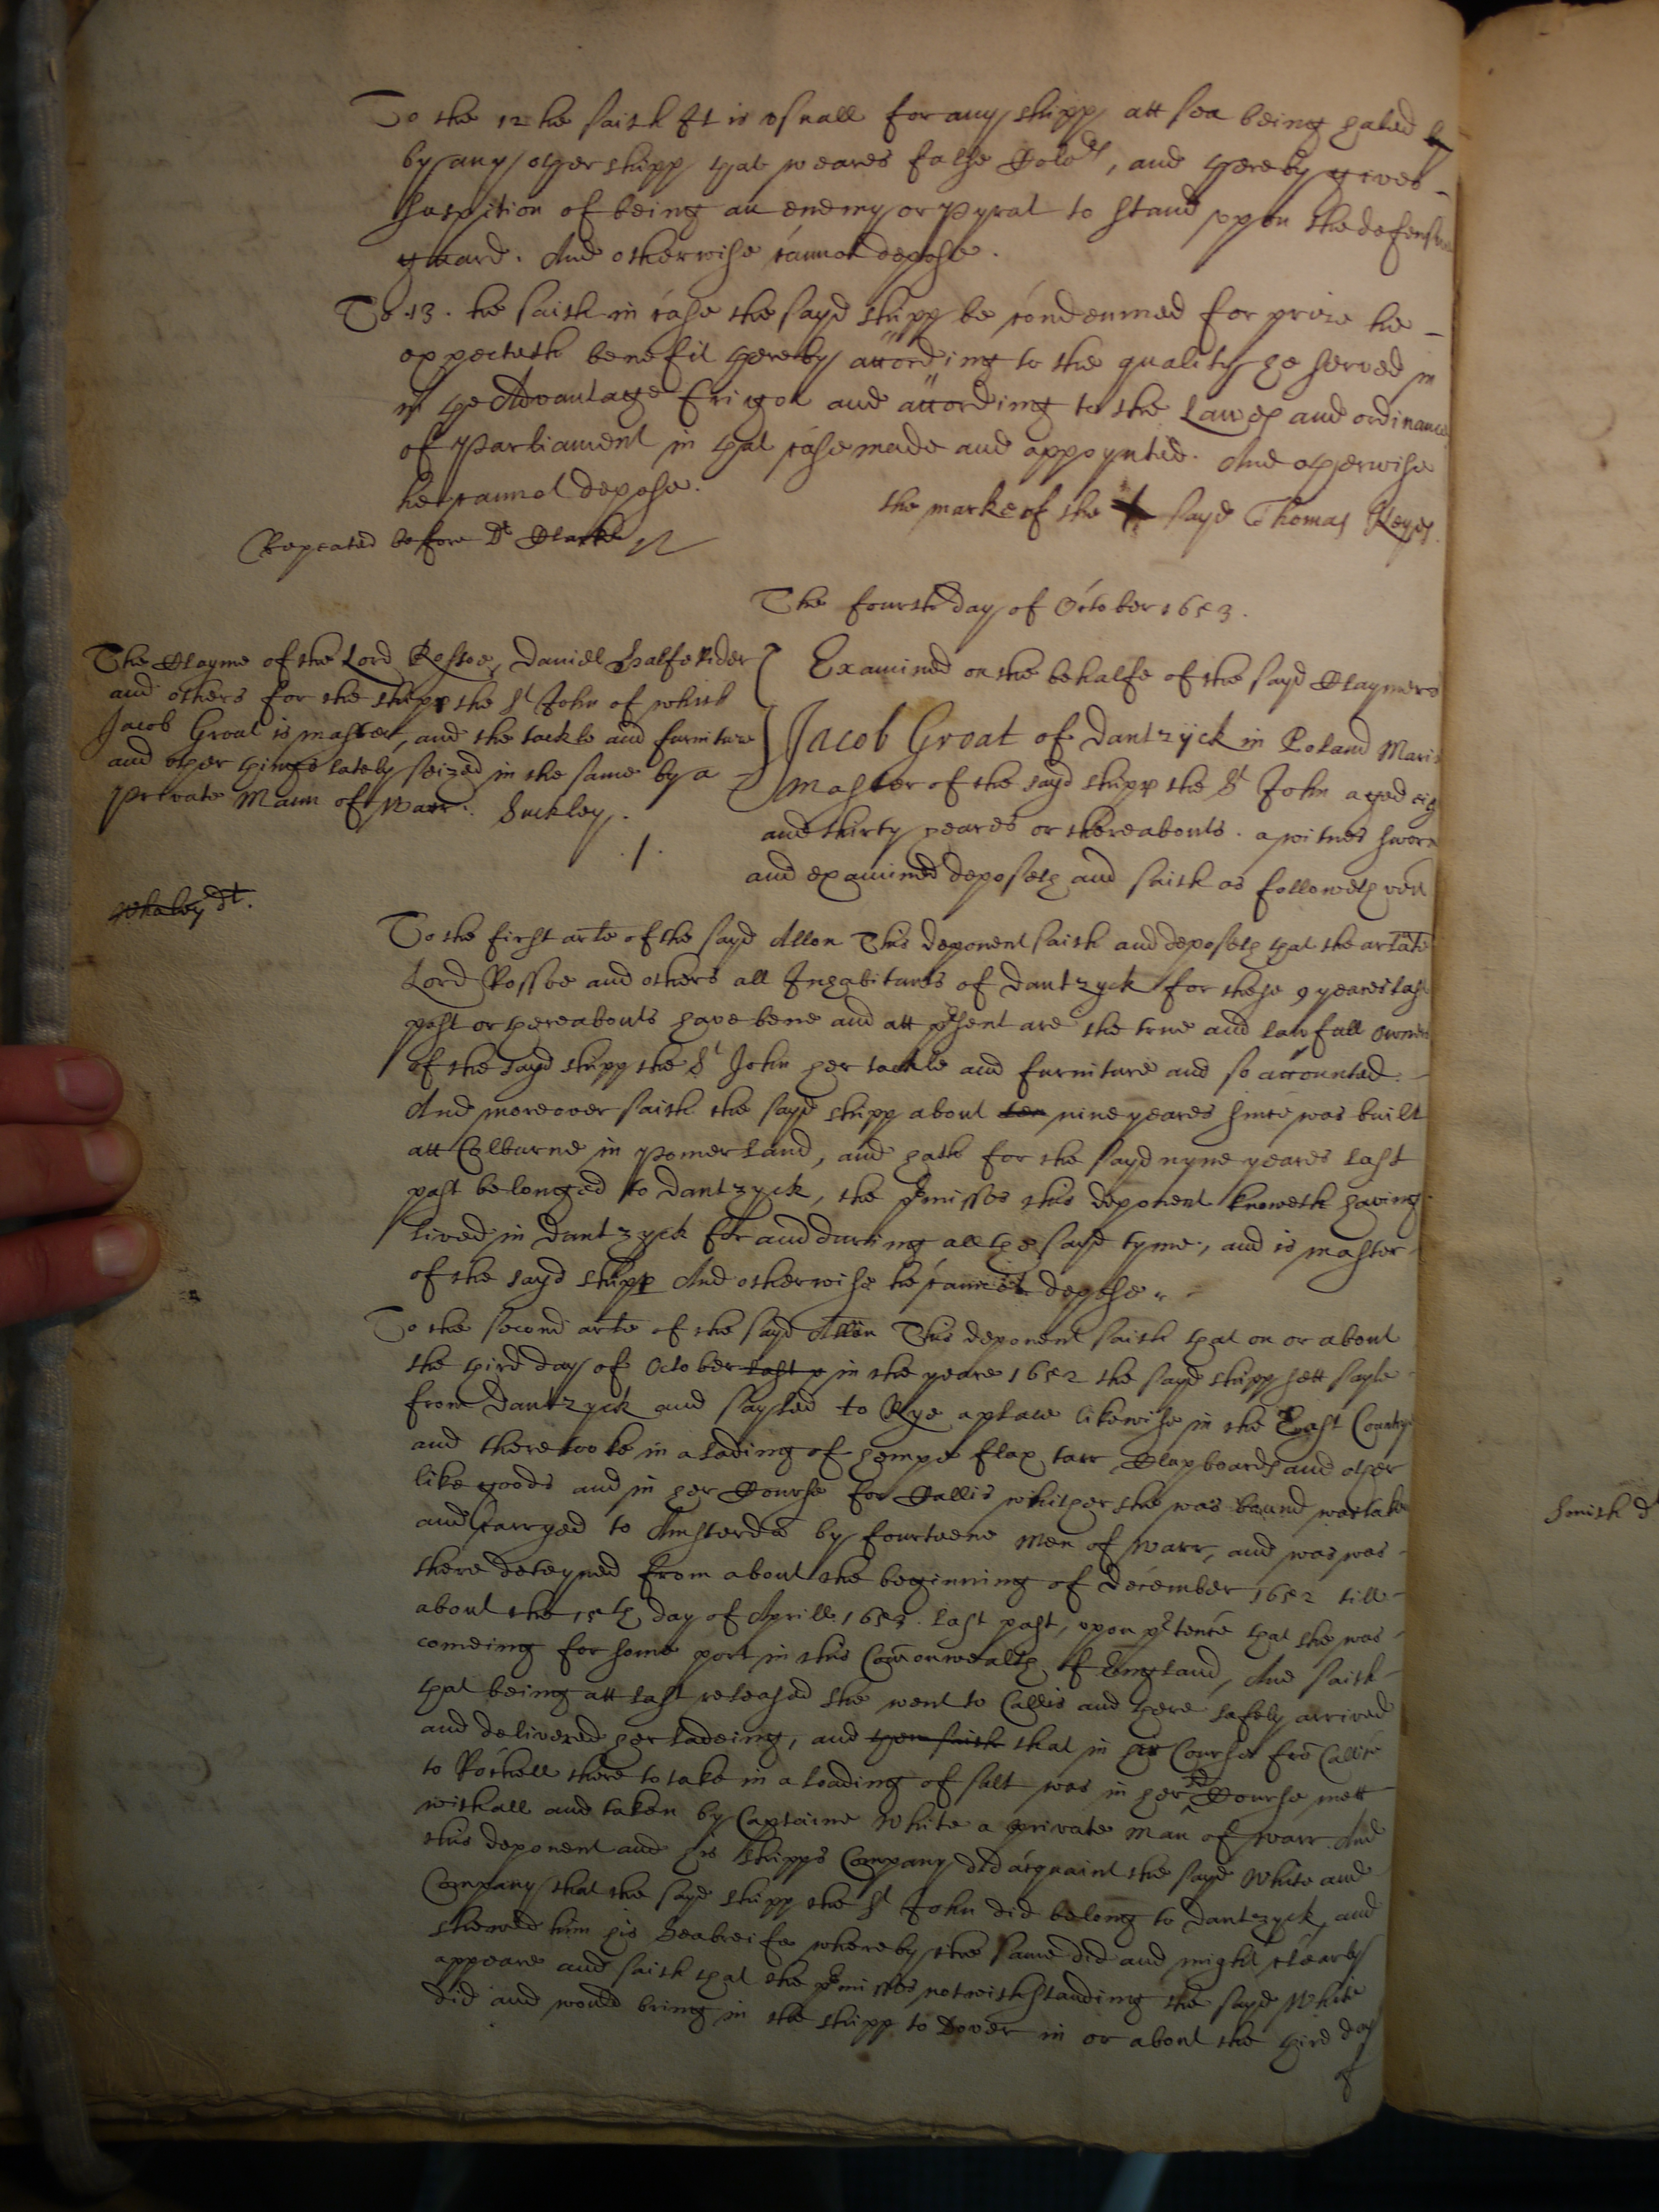 To the 12 he saith It is usuall for any shipp att sea being haled by
by any other shipp that weares false Colo:rs, and thereby gives
suspition of being an enemy or Pyrat to stand upon the defensive
guard. And otherwise cannot depose.
To .13. he saith in case the sayd shipp be condemned for prize he
expecteth benefit thereby according to the quality he served in
in the Advantage ffrigot and according to the Lawes and ordinances
of Parliament in that case made and appoynted. And otherwise
he cannot depose.
the marke of the sayd Thomas Keyes.
Repeated before Dr Clarke
The fourth day of October 1653.
The Clayme of the Lord Rossoe, Daniel Halfe Rider
and others for the shipp the St John of which
Jacob Groat is master, and the tackle and furniture
and other things lately seized in the same by a
private Mann of Warr. Suckley.
.1.
Examined on the behalfe of the sayd Claymers
Jacob Groat of Dantzyck in Poland Marin
Master of the sayd shipp the St John aged eig
and thirty yeares or thereabouts. a witnes sworn
and examined deposeth and saith as followeth vizt
Whaley dt.
To the first arle of the sayd Allon This deponent saith and deposeth that the arlate
Lord Rossoe and others all Inhabitants of Dantzyck for these 9 yeares last
past or thereabouts have bene and att present are the true and lawfull owners
of the sayd shipp the St John her tackle and furniture and so accounted.
And moreover saith the sayd shipp about ten nine yeares since was built
att Colburne in Pomerland, and hath for the sayd nyne yeares last
past belonged to Dantzyck, the premisses this deponent knoweth having
lived in Dantzyck for and during all the sayd tyme, and is master
of the sayd shipp And otherwise he cannot depose.
To the second arle of the sayd Allon This deponent saith that on or about
the third day of October last p in the yeare 1652 the sayd shipp sett sayle
from Dantzyck and sayled to Rye a place likewise in the East Countrye
and there tooke in a lading of hempe flax tarr Clapboards and other
like goods and in her Course for Callis whither she was bound was taken
and carryed to Amsterdã by fourteene Men of Warr, and was was
there deteyned from about the beginning of december 1652 till
about the 15th day of Aprill 1653. last past, upon prtence that she was
comeing for some port in this Comonwealth of England, And saith
that being att last released she went to Callis and there safely arrived
and delivered her ladeing, and then saith that in her Course frõ Callis
to Rochell there to take in a loading of salt was in her sd Course mett
withall and taken by Captaine White a private Man of Warr. And
this deponent and his shipps Company did acquaint the sayd White and
Company that the sayd shipp the St John did belong to Dantzyck, and
shewed him his Seabreife whereby the same did and might clearly
appeare and saith that the premisses notwithstanding the sayd White
did and would bring in the shipp to Dover in or about the third day
of
Smith d